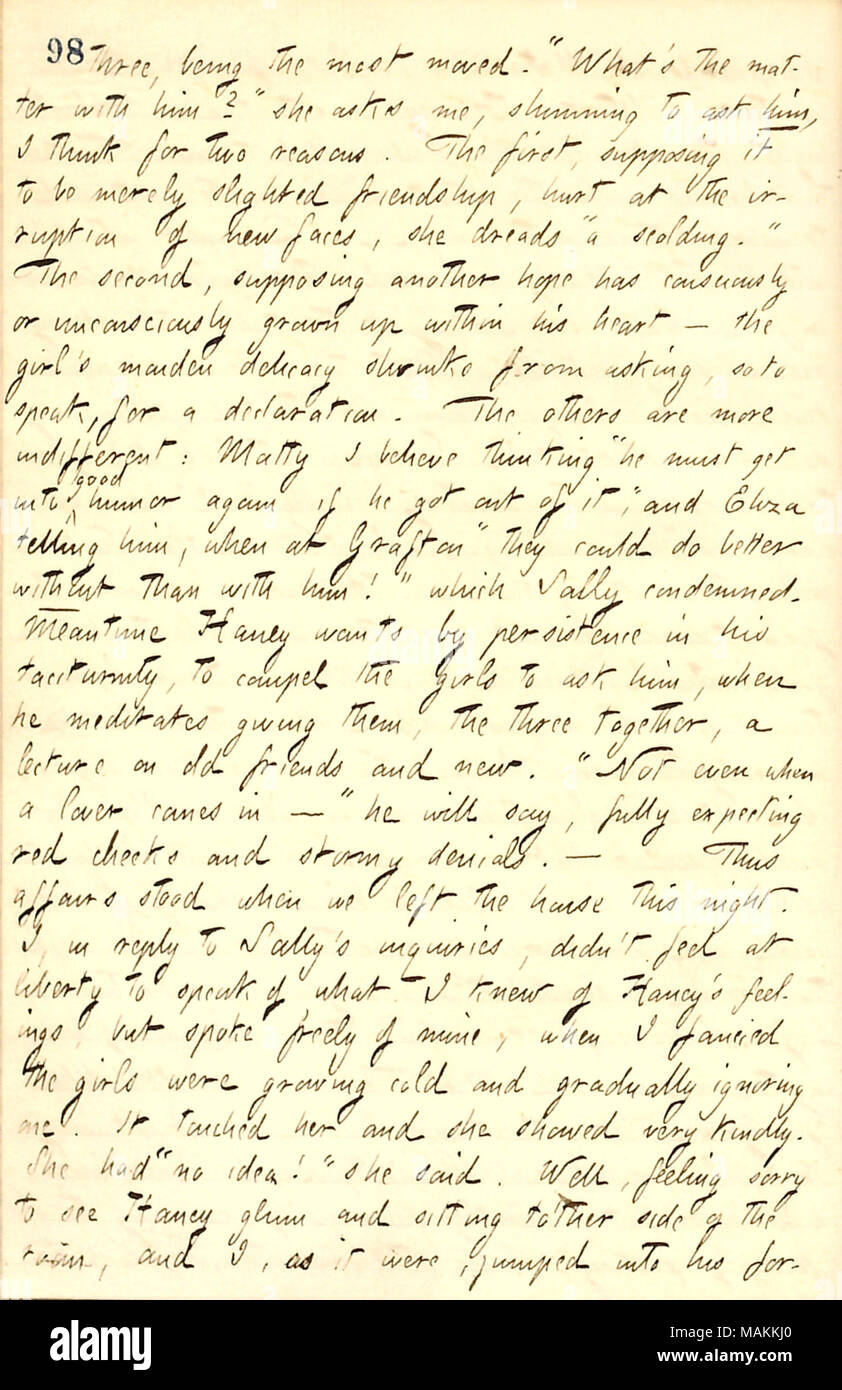 98 three, being the most moved. "What's the mat-
ter with him?" she asks me, shunning to ask him,
I think for two reasons. The first, supposing it
to be merely slighted friendship, hurt at the ir-
ruption of new faces, she dreads "a scolding."
The second, supposing another hope has consciously
or unconsciously grown up within his heart — the
girl's maiden delicacy shrinks from asking, so to
speak, for a declaration. The others are more
indifferent: Matty I believe thinking "he must get
into good humor again if he got out of it"; and Eliza
telling him, when at Grafton "they could do better
without than with him!" which Sally condemned.
Meantime Haney wants by persistence in his
taciturnity, to compel the girls to ask him, when
he meditates giving them, the three together, a
lecture on old friends and new. "Not even when
a lover comes in —" he will say, fully expecting
red cheeks and stormy denials. — Thus
affairs stood when we left the house this night.
I, in reply to Sally's inquiries, didn't feel at
liberty to speak of what I knew of Haney's feel-
ings, but spoke freely of mine, when I fancied
the girls were growing cold and gradually ignoring
me. It touched her and she showed very kindly.
She had "no idea!" she said. Well, feeling sorry
to see Haney glum and sitting tother side of the
room, and I, as it were, jumped into his for-
alamy
Image ID: MAKKJ0
www.alamy.com